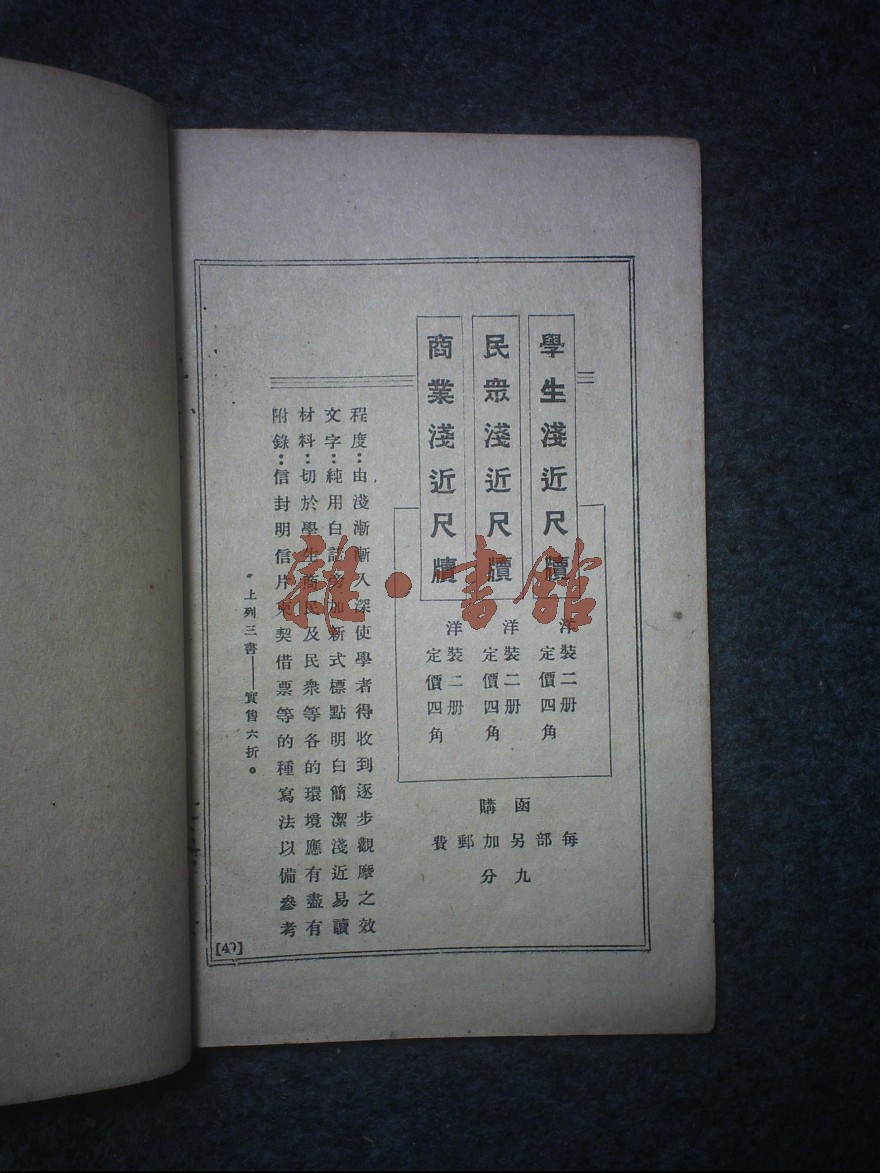 學生淺近尺牘
洋裝二册
定價四角
民眾淺近尺牘
洋裝二册
定價四角
商業淺近尺牘
洋裝二册
定價四角
函購
每部另加郵費
九分
程度：由淺漸漸入深使學者得收到逐步觀摩之效
文字：純用白話旁加新式標點明白簡潔淺近易讀
材料：切於學生商民及民衆等各的環境應有盡有
附錄：信封明信片柬契借票等的種寫法以備參考
上列三書——實售六折。
[40]
雜·書館